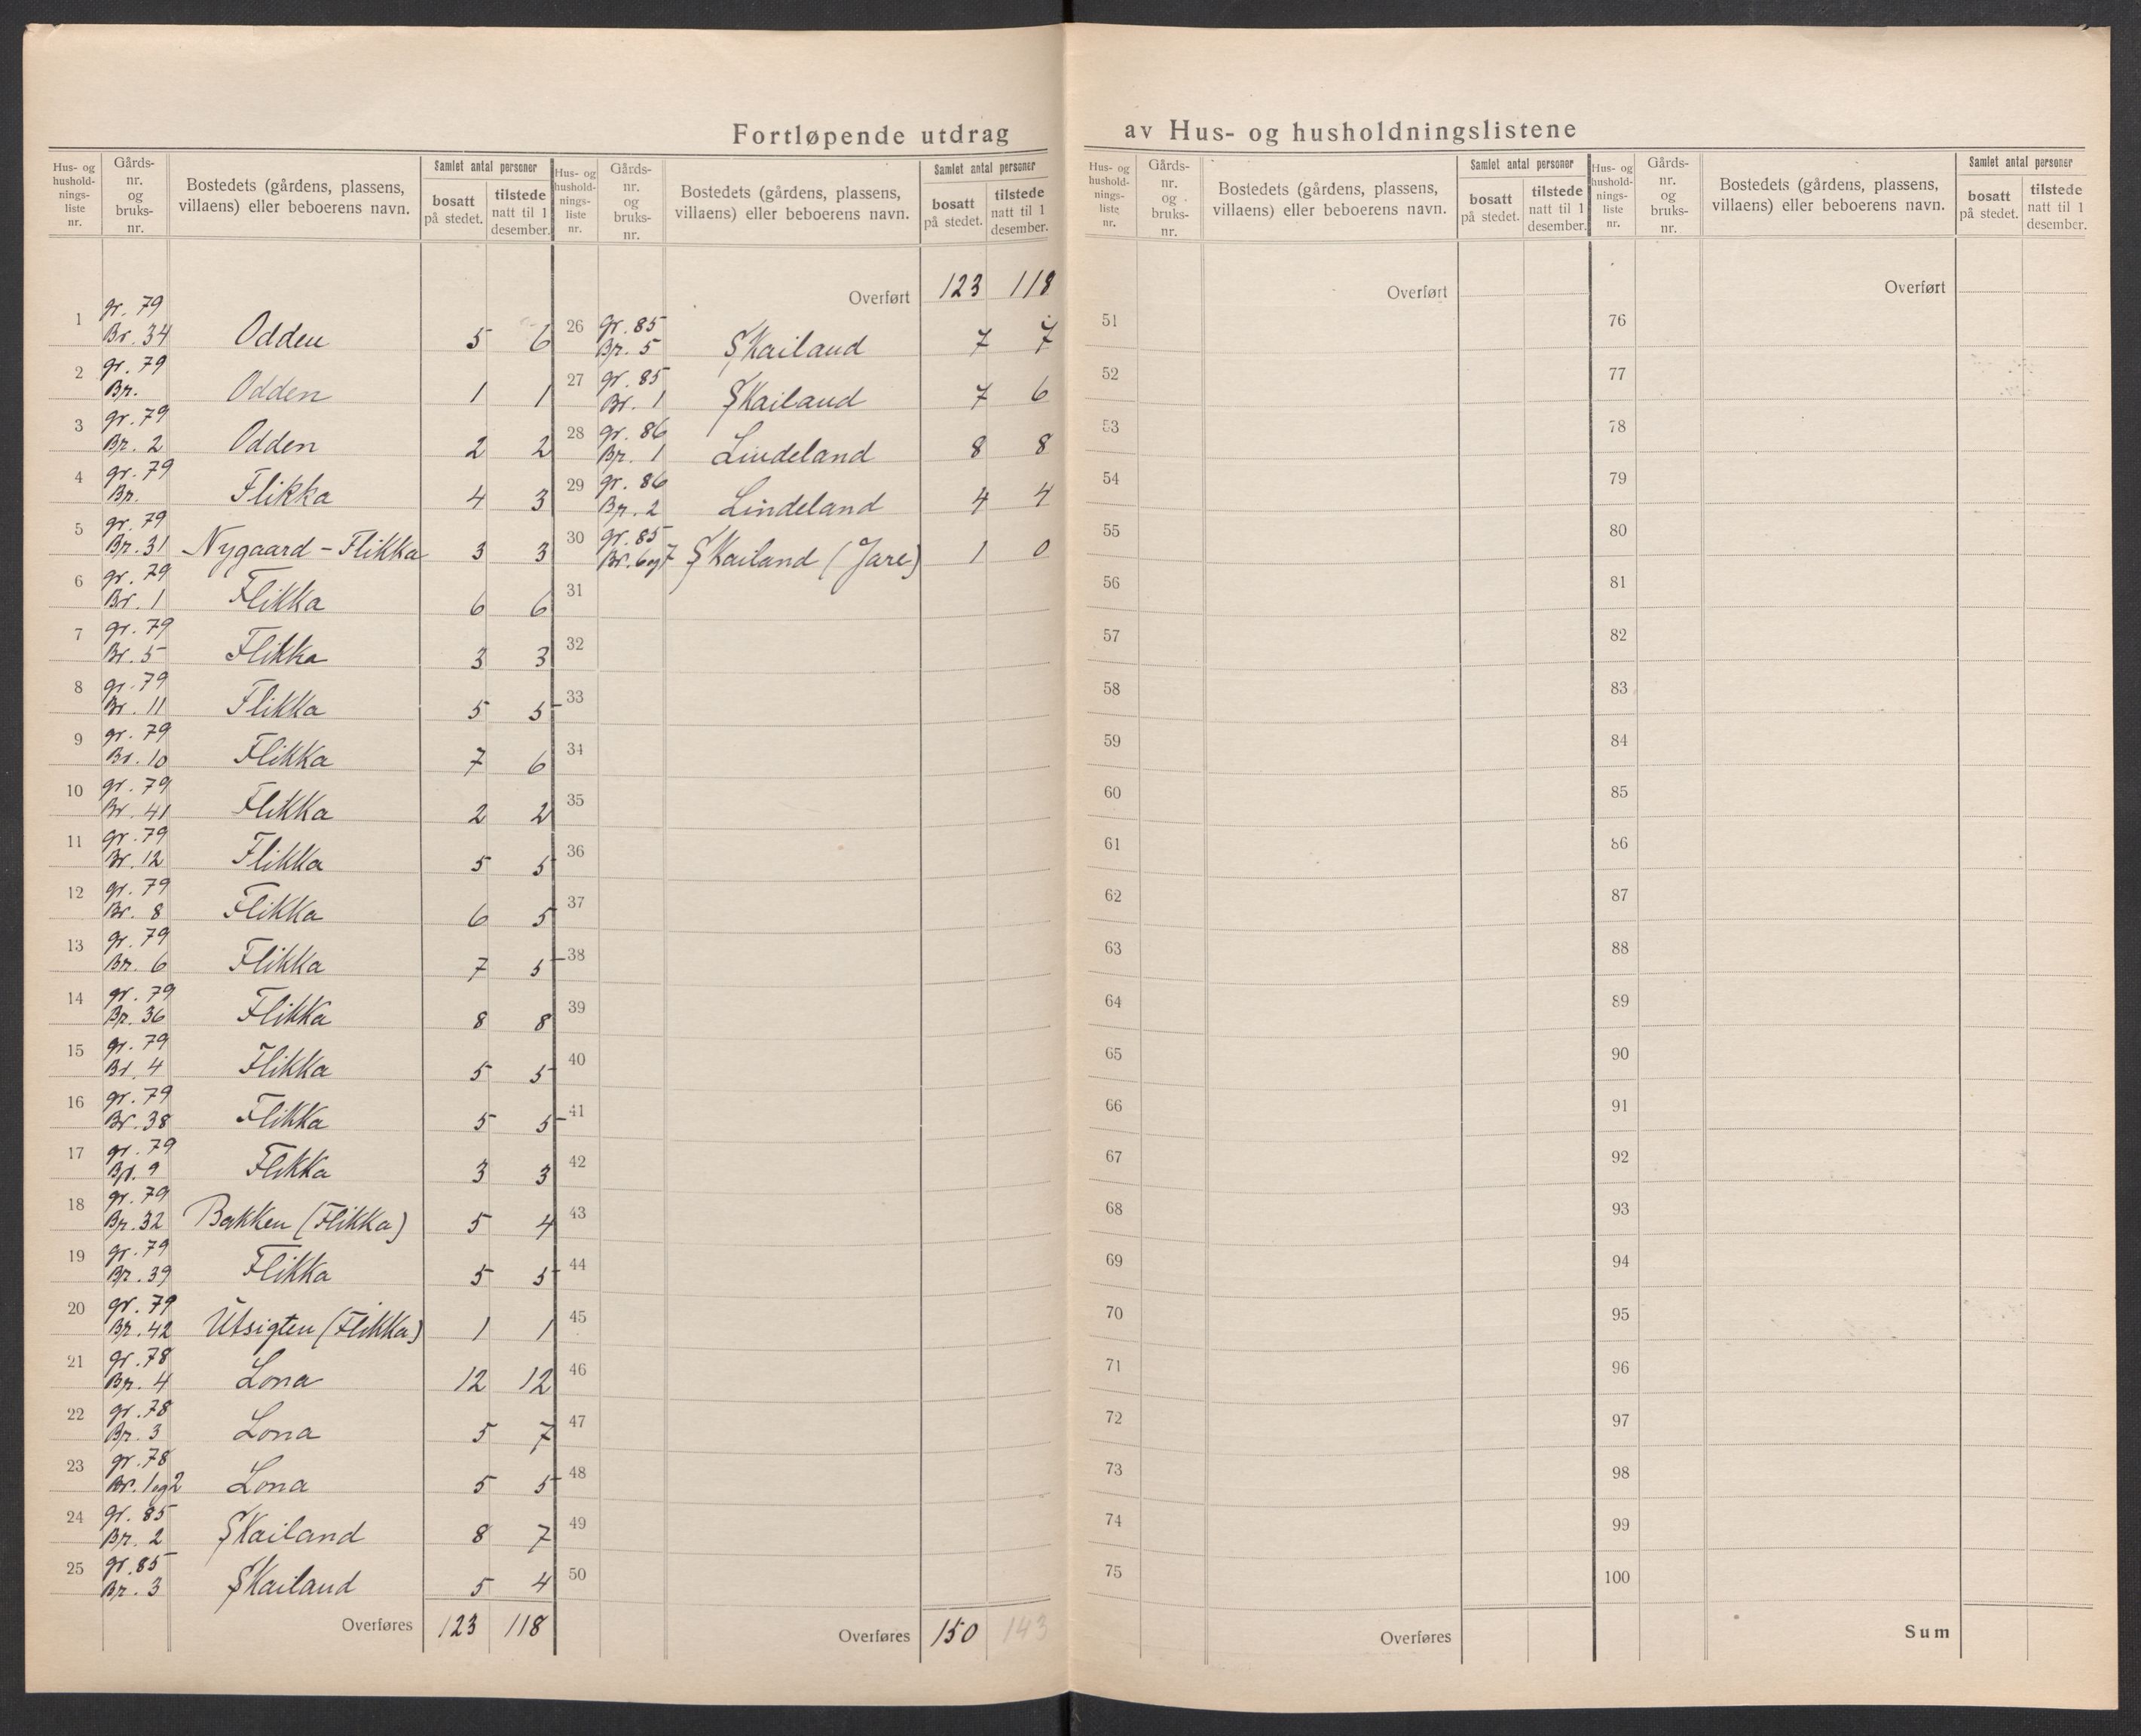 Fortløpende utdrag av Hus- og husholdningslistene
Hus- og husholdnings-liste nr. | Gårds-nr. og bruks-nr. | Bostedets (gårdens, plassens, villaens) eller beboerens navn. | Samlet antal personer | bosatt på stedet. | tilstede natt til 1 desember.
1 gr. 79 Br. 34 Odden 5 6
2 gr. 79 Br. Odden 1 1
3 gr. 79 Br. 2 Odden 2 2
4 gr. 79 Br. Flikka 4 3
5 gr. 79 Br. 31 Nygaard - Flikka 3 3
6 gr. 79 Br. 1 Flikka 6 6
7 gr. 79 Br. 5 Flikka 3 3
8 gr. 79 Br. 11 Flikka 5 5
9 gr. 79 Br. 10 Flikka 7 6
10 gr. 79 Br. 41 Flikka 2 2
11 gr. 79 Br. 12 Flikka 5 5
12 gr. 79 Br. 8 Flikka 6 5
13 gr. 79 Br. 6 Flikka 7 5
14 gr. 79 Br. 36 Flikka 8 8
15 gr. 79 Br. 4 Flikka 5 5
16 gr. 79 Br. 38 Flikka 5 5
17 gr. 79 Br. 9 Flikka 3 3
18 gr. 79 Br. 32 Bakken (Flikka) 5 4
19 gr. 79 Br. 39 Flikka 5 5
20 gr. 79 Br. 42 Utsigten (Flikka) 1 1
21 gr. 78 Br. 4 Lona 12 12
22 gr. 78 Br. 3 Lona 5 7
23 gr. 78 Br. 1 og 2 Lona 5 5
24 gr. 85 Br. 2 Skailand 8 7
25 gr. 85 Br. 3 Skailand 5 4
Overføres 123 118
Hus- og husholdnings-liste nr. | Gårds-nr. og bruks-nr. | Bostedets (gårdens, plassens, villaens) eller beboerens navn. | Samlet antal personer | bosatt på stedet. | tilstede natt til 1 desember.
Overført 123 118
26 gr. 85 Br. 5 Skailand 7 7
27 gr. 85 Br. 1 Skailand 7 6
28 gr. 86 Br. 1 Lindeland 8 8
29 gr. 86 Br. 2 Lindeland 4 4
30 gr. 85 Br. 6 og 7 Skailand (Jare) 1 0
31
32
33
34
35
36
37
38
39
40
41
42
43
44
45
46
47
48
49
50
Overføres 150 143
Hus- og hushold-nings-liste nr. | Gårds-nr. og bruks-nr. | Bostedets (gårdens, plassens, villaens) eller beboerens navn. | Samlet antal personer | bosatt på stedet. | tilstede natt til 1 desember.
Overført
51
52
53
54
55
56
57
58
59
60
61
62
63
64
65
66
67
68
69
70
71
72
73
74
75
Overføres
Hus- og hushold-nings-liste nr. | Gårds-nr. og bruks-nr. | Bostedets (gårdens, plassens, villaens) eller beboerens navn. | Samlet antal personer | bosatt på stedet. | tilstede natt til 1 desember.
Overført
76
77
78
79
80
81
82
83
84
85
86
87
88
89
90
91
92
93
94
95
96
97
98
99
100
Sum